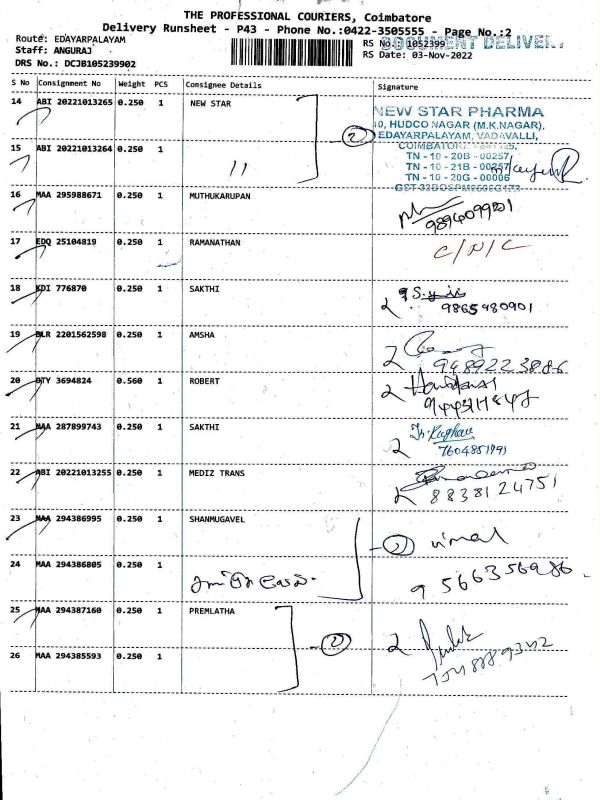 THE PROFESSIONAL COURIERS, Coimbatore
Delivery Runsheet - P43 - Phone No.:0422-3505555 - Page No.:2
Route: EDAYARPALAYAM
RS No.: 1052399
DOCUMENT DELIVERY
Staff: ANGURAJ
RS Date: 03-Nov-2022
DRS No.: DCJB105239902
S No Consignment No Weight PCS Consignee Details Signature
14 ABI 20221013265 0.250 1 NEW STAR
NEW STAR PHARMA
10, HUDCO NAGAR (M.K.NAGAR),
2 EDAYARPALAYAM, VADAVALLI,
15 ABI 20221013264 0.250 1 11
TN - 10 - 20B - 00257
TN - 10 - 21B - 00257
TN - 10 - 20G - 00006
16 MAA 295988671 0.250 1 MUTHUKARUPAN
9894099201
17 EDQ 25104819 0.250 1 RAMANATHAN C/N/C
18 KDI 776870 0.250 1 SAKTHI
9865480901
19 BLR 2201562598 0.250 1 AMSHA
9489223886
20 BTY 3694824 0.560 1 ROBERT
21 MAA 287899743 0.250 1 SAKTHI
7604851991
22 ABI 20221013255 0.250 1 MEDIZ TRANS
8838124751
23 MAA 294386995 0.250 1 SHANMUGAVEL
2 vimal
24 MAA 294386805 0.250 1
9566356986
25 MAA 294387160 0.250 1 PREMLATHA
2
26 MAA 294385593 0.250 1